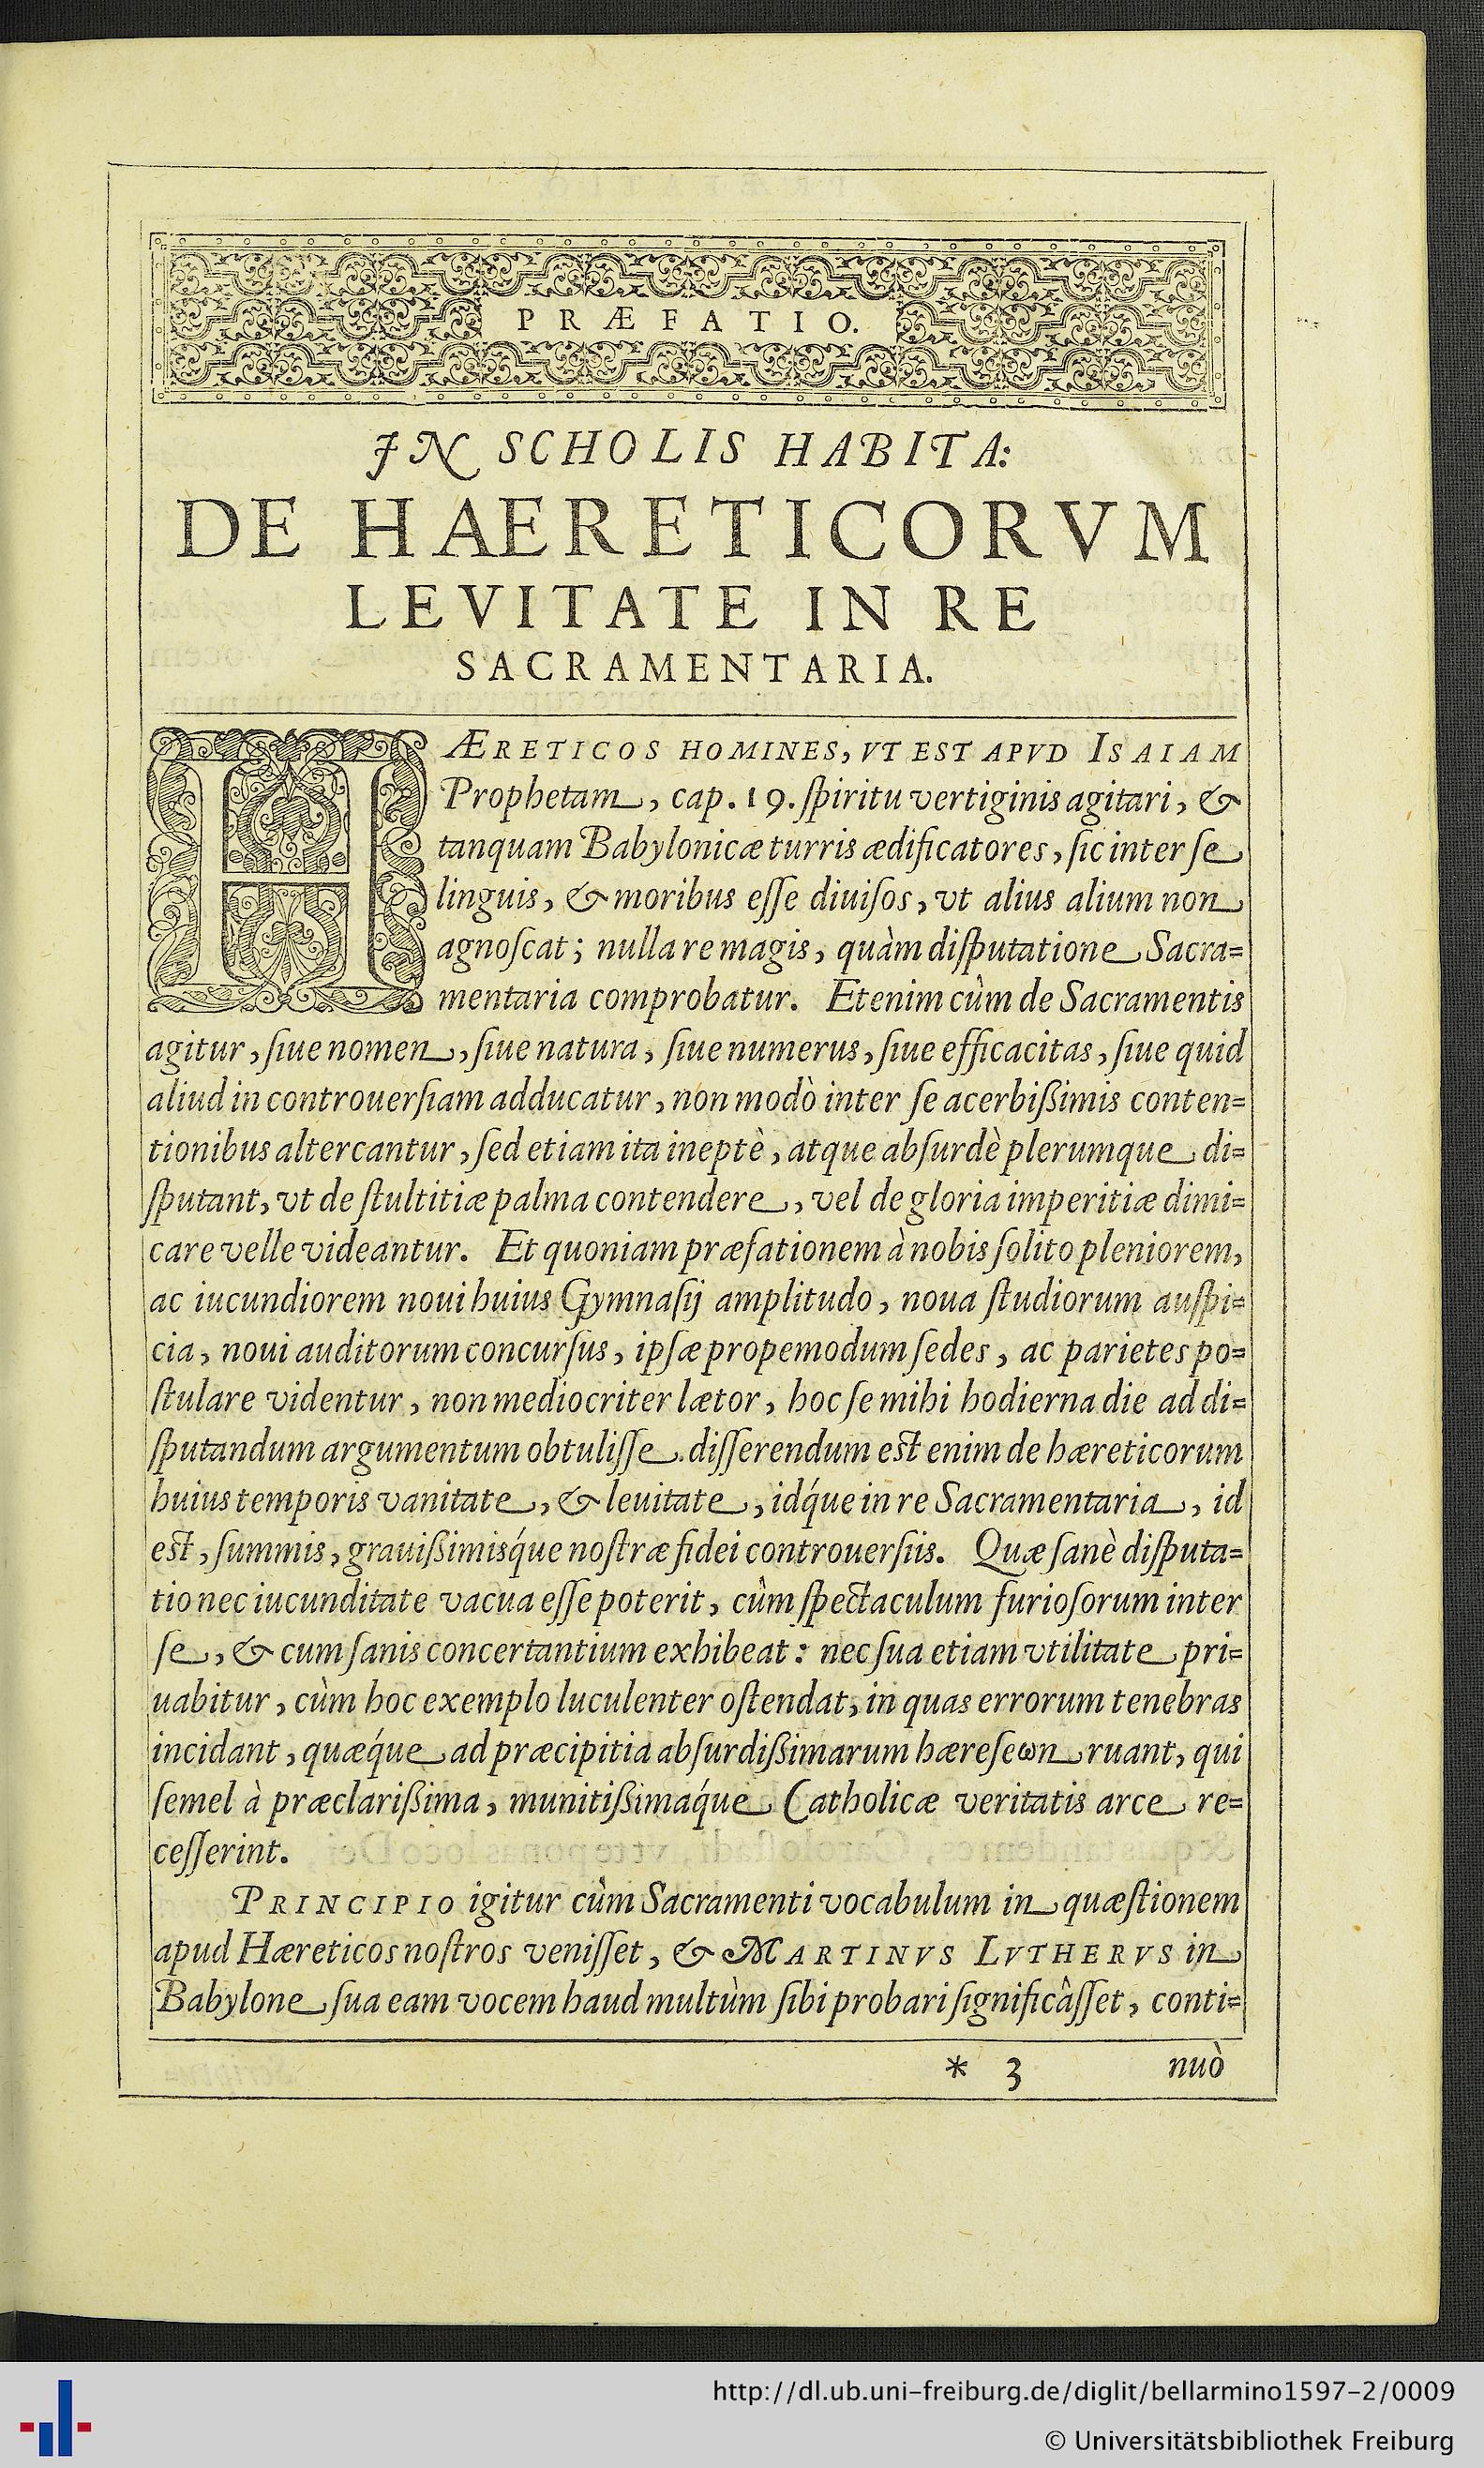 PRÆFATIO.
IN SCHOLIS HABITA:
DE HAERETICORVM
LEVITATE IN RE
SACRAMENTARIA.
HÆRETICOS HOMINES, VT EST APVD ISAIAM
Prophetam, cap. 19. ſpiritu vertiginis agitari, &
tanquam Babylonicæ turris ædificatores, ſic inter ſe
linguis, & moribus eſſe diuiſos, vt alius alium non
agnoſcat; nulla re magis, quàm diſputatione Sacra=
mentaria comprobatur. Etenim cùm de Sacramentis
agitur, ſiue nomen, ſiue natura, ſiue numerus, ſiue efficacitas, ſiue quid
aliud in controuerſiam adducatur, non modò inter ſe acerbißimis conten=
tionibus altercantur, ſed etiam ita ineptè, atque abſurdè plerumque di=
ſputant, vt de ſtultitiæ palma contendere, vel de gloria imperitiæ dimi=
care velle videantur. Et quoniam præfationem à nobis ſolito pleniorem,
ac iucundiorem noui huius Gymnaſij amplitudo, noua ſtudiorum auſpi=
cia, noui auditorum concurſus, ipſæ propemodum ſedes, ac parietes po=
ſtulare videntur, non mediocriter lætor, hoc ſe mihi hodierna die ad di=
ſputandum argumentum obtuliſſe. diſſerendum eſt enim de hæreticorum
huius temporis vanitate, & leuitate, idq́ue in re Sacramentaria, id
eſt, ſummis, grauißimisq́ue noſtræ fidei controuerſiis. Quæ ſanè diſputa=
tio nec iucunditate vacua eſſe poterit, cùm ſpectaculum furioſorum inter
ſe, & cum ſanis concertantium exhibeat: nec ſua etiam vtilitate pri=
uabitur, cùm hoc exemplo luculenter oſtendat, in quas errorum tenebras
incidant, quæq́ue ad præcipitia abſurdißimarum hæreſeωn ruant, qui
ſemel à præclarißima, munitißimaq́ue Catholicæ veritatis arce re=
ceſſerint.
PRINCIPIO igitur cùm Sacramenti vocabulum in quæſtionem
apud Hæreticos noſtros veniſſet, & MARTINVS LVTHERVS in
Babylone ſua eam vocem haud multùm ſibi probari ſignificâſſet, conti=
* 3 nuò
http://dl.ub.uni-freiburg.de/diglit/bellarmino1597-2/0009
© Universitätsbibliothek Freiburg